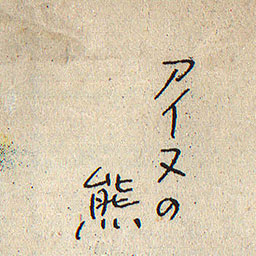 アイヌの
熊